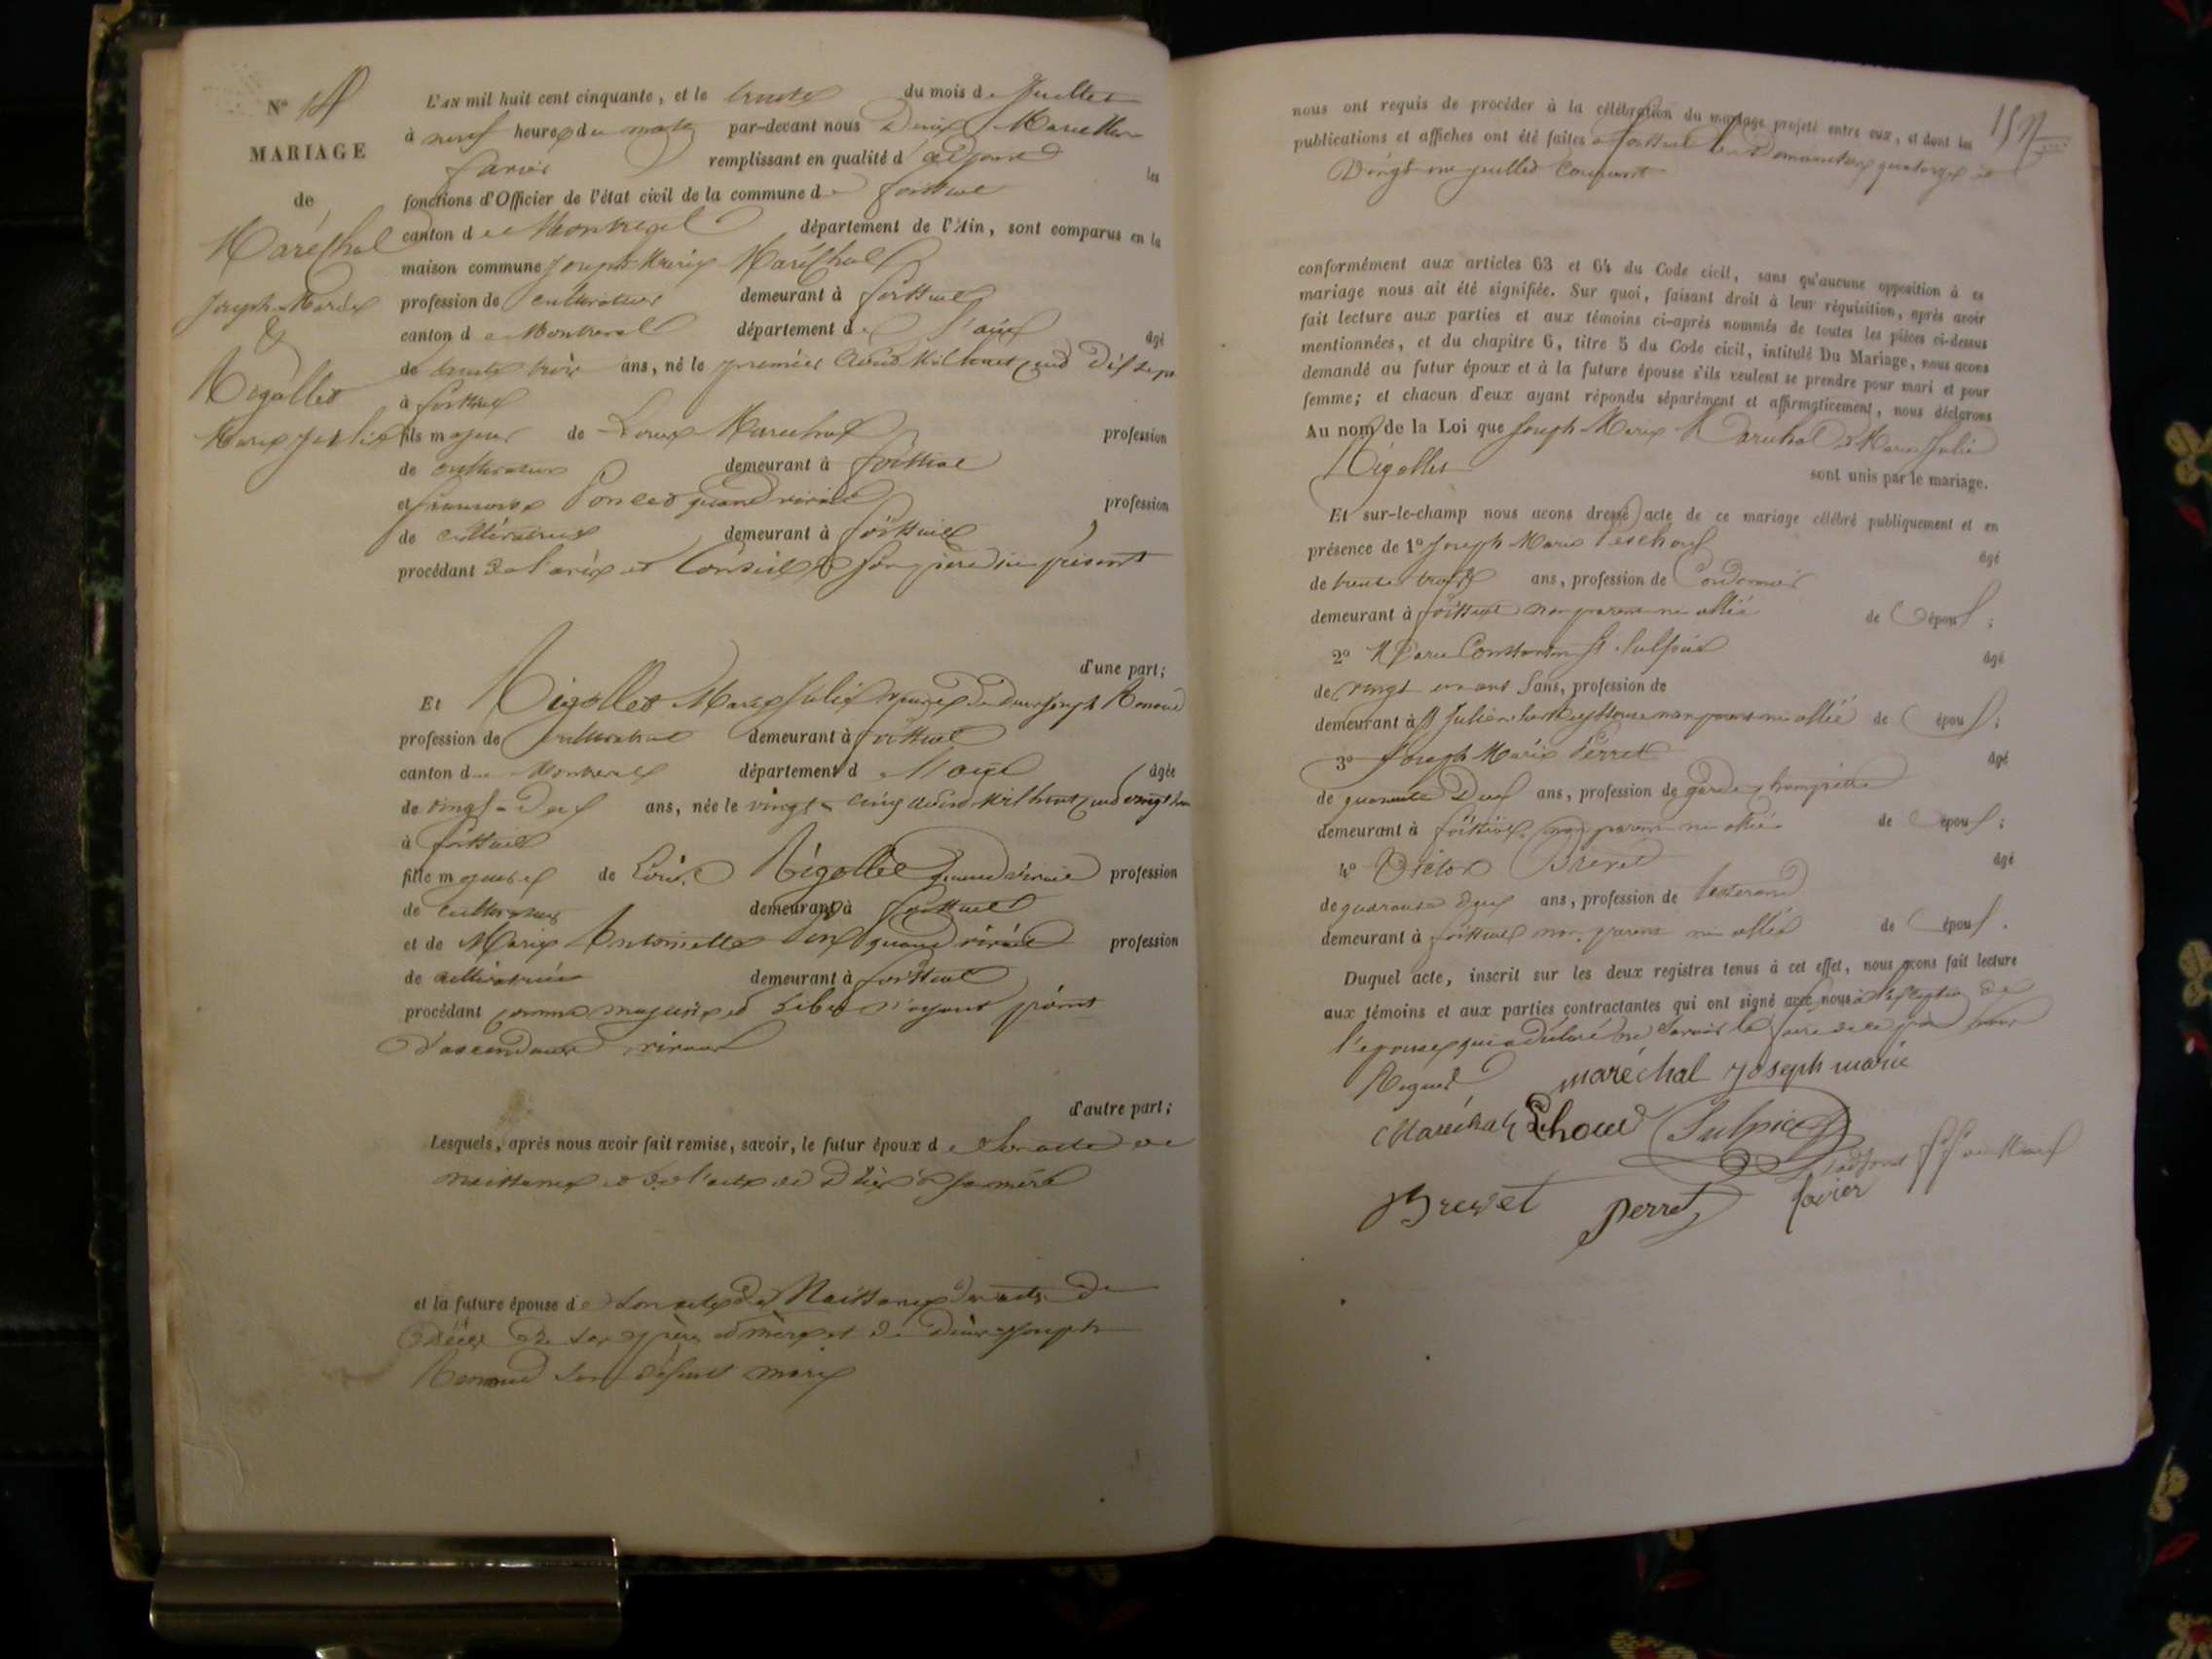 N°
MARIAGE
de
Maréchal
Joseph Marie
&
Rigollet
Marie Julie
L'an mil huit cent cinquante, et le trente du mois de Juillet
à neuf heures du matin par-devant nous Denis Marcellin
favier remplissant en qualité d'adjoint les
fonctions d'Officier de l'état civil de la commune de foissiat
canton de Montrevel département de l'Ain, sont comparus en la
maison commune Joseph Marie Maréchal
profession de cultivateur demeurant à foissiat
canton de Montrevel département de l'ain âgé
de trente trois ans, né le premier Août mil huit cent dix sept
à foissiat
fils majeur de Louis Marechal profession
de cultivateur demeurant à foissiat
et françoise Poncet quand vivait profession
de cultivatrice demeurant à foissiat
procédant de l'avis et Conseil de son père ici présent
d'une part;
Et Rigollet Marie Julie veuve de Joseph Renoud
profession de cultivatrice demeurant à foissiat
canton de Montrevel département de l'ain âgée
de vingt-neuf ans, née le vingt cinq Août mil huit cent vingt
à foissiat
fille majeure de Louis Rigollet quand vivait profession
de cultivateur demeurant à foissiat
et de Marie Antoinette quand vivait profession
de cultivatrice demeurant à foissiat
procédant comme majeure et libre n'ayant point
d'ascendants vivants
d'autre part;
Lesquels, après nous avoir fait remise, savoir, le futur époux de son acte de
naissance et de l'acte de décès de sa mère
et la future épouse de son acte de Naissance des actes de
Décès de ses père et mère et de Joseph
Renoud son défunt mari
nous ont requis de procéder à la célébration du mariage projeté entre eux, et dont les
publications et affiches ont été faites à foissiat les Dimanches quatorze et
Vingt un juillet courant
conformément aux articles 63 et 64 du Code civil, sans qu'aucune opposition à ce
mariage nous ait été signifiée. Sur quoi, faisant droit à leur réquisition, après avoir
fait lecture aux parties et aux témoins ci-après nommés de toutes les pièces ci-dessus
mentionnées, et du chapitre 6, titre 5 du Code civil, intitulé Du Mariage, nous avons
demandé au futur époux et à la future épouse s'ils veulent se prendre pour mari et pour
femme; et chacun d'eux ayant répondu séparément et affirmativement, nous déclarons
Au nom de la Loi que Joseph Marie Marechal & Marie Julie
Rigollet sont unis par le mariage.
Et sur-le-champ nous avons dressé acte de ce mariage célébré publiquement et en
présence de 1° Joseph Marie âgé
de trente trois ans, profession de Cordonnier
demeurant à foissiat non parent ni allié de époux;
2° Marie Constantin St Sulpice âgé
de vingt un ans, profession de
demeurant à St Julien sur Reyssouze non parent ni allié de époux;
3° Joseph Marie Perret âgé
de quarante Deux ans, profession de garde champêtre
demeurant à foissiat non parent ni allié de époux;
4° Victor Brevet âgé
de quarante deux ans, profession de tisserand
demeurant à foissiat non parent ni allié de époux.
Duquel acte, inscrit sur les deux registres tenus à cet effet, nous avons fait lecture
aux témoins et aux parties contractantes qui ont signé avec nous à l'exception de
l'epouse qui a déclaré ne savoir le faire de ce par nous
Requis maréchal joseph marie
Maréchal Sulpice
Brevet perret favier